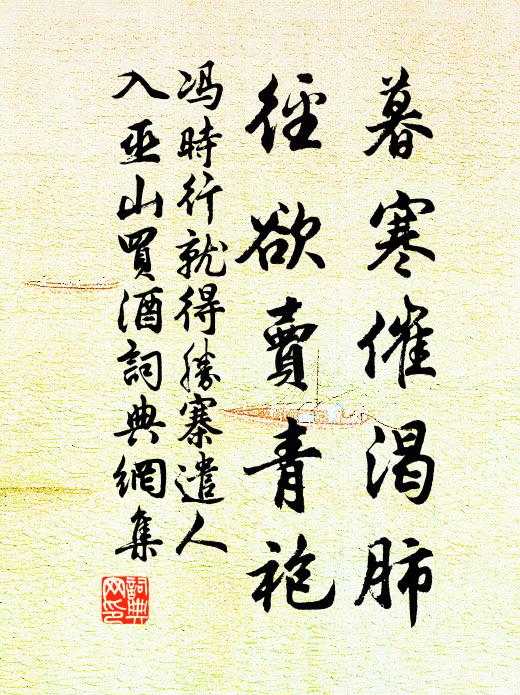 暮寒催渴肺
徑欲賣青袍
冯時行就得勝寨遣人
入巫山買酒詞典網集
詞典網印